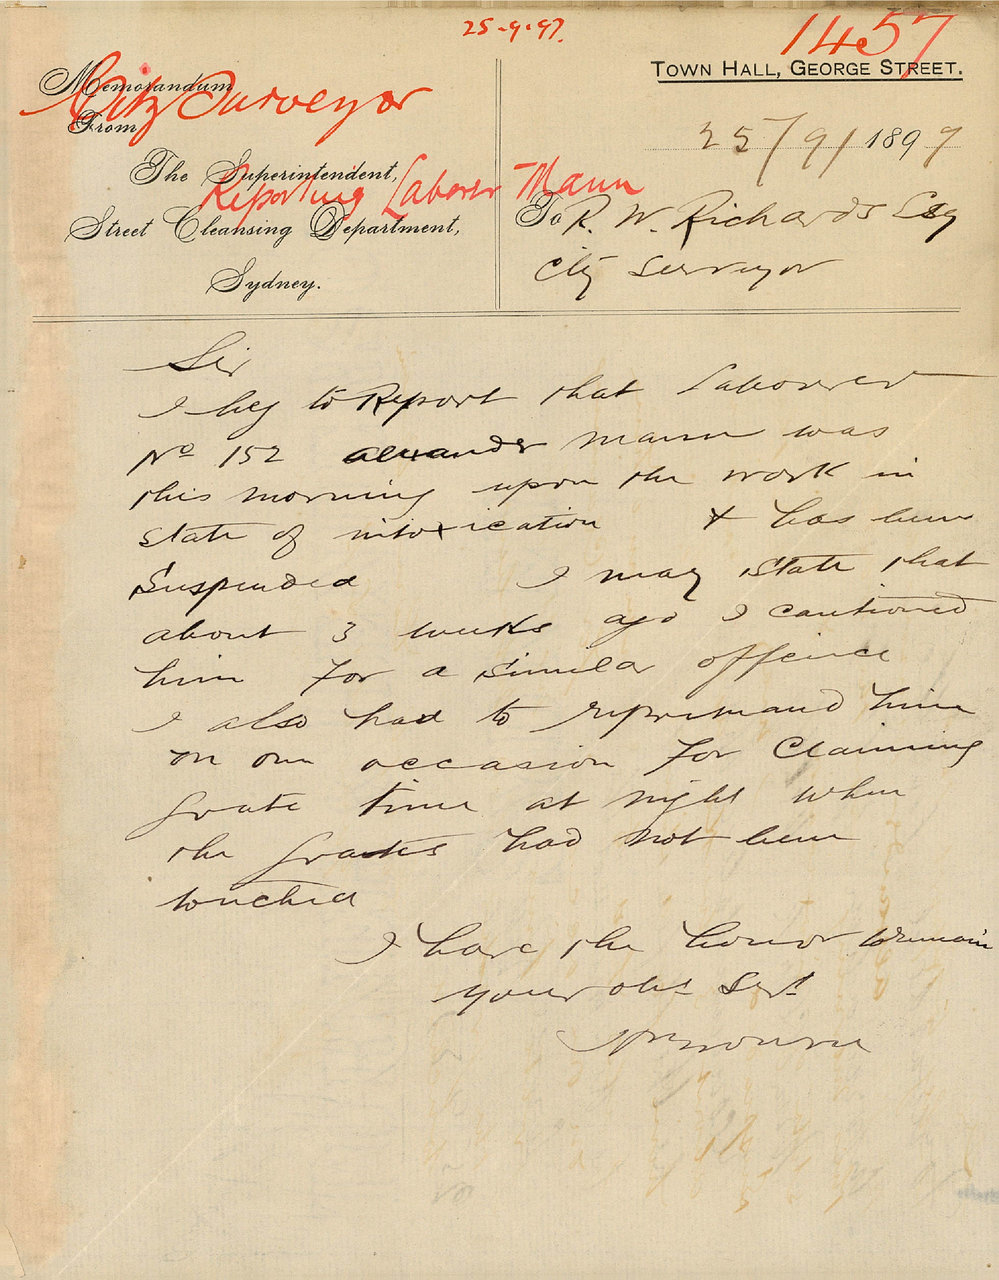 25-9-97.
1457
Town Hall, George Street.
Memorandum
City Surveyor
From
25/9/1897
The Superintendent,
Reporting Laborer Mann
Street Cleansing Department,
Sydney.
To R. W. Richards Esq
City Surveyor
Sir
I beg to Report that Labourer
No 152 Alexander Mann was
this morning upon the work in
state of intoxication & has been
Suspended I may state that
about 3 weeks ago I cautioned
him for a similar offence
I also had to reprimand him
on one occasion for Claiming
grate time at night when
the grates had not been
touched
I have the honor to remain
your obt Servt